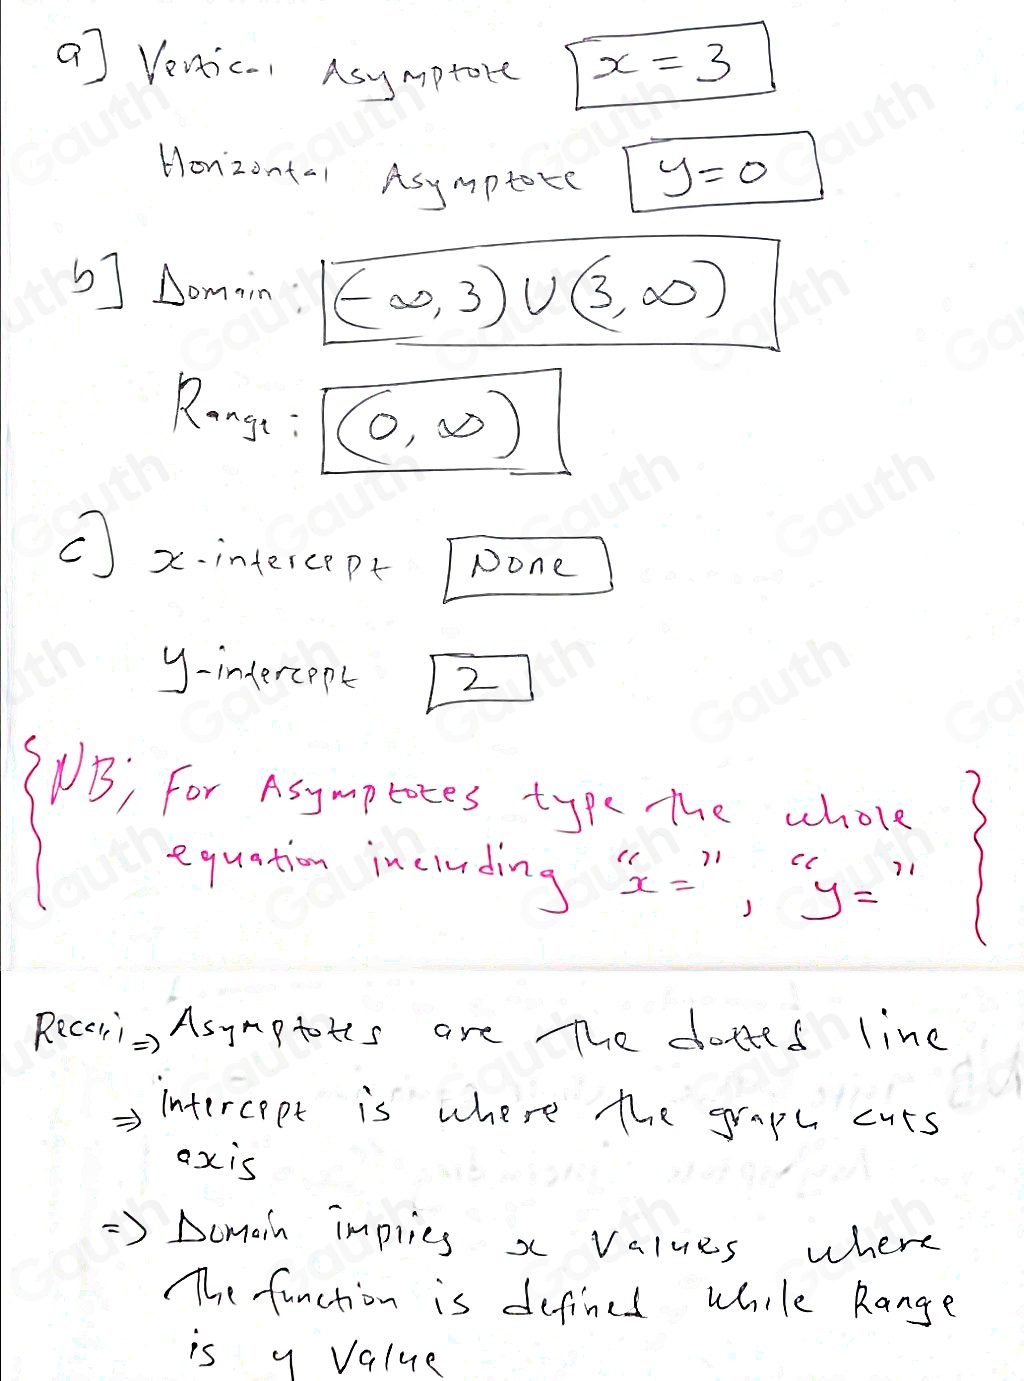 a] Vertical Asymptote x = 3
Horizontal Asymptote y = 0
b] Domain : (-∞, 3) ∪ (3, ∞)
Range : (0, ∞)
c] x-intercept None
y-intercept 2
{NB; For Asymptotes type the whole
equation including "x =", "y =" }
Recall ⇒ Asymptotes are the dotted line
⇒ Intercept is where the graph cuts
axis
=> Domain implies x values where
the function is defined while Range
is y value
Gauth